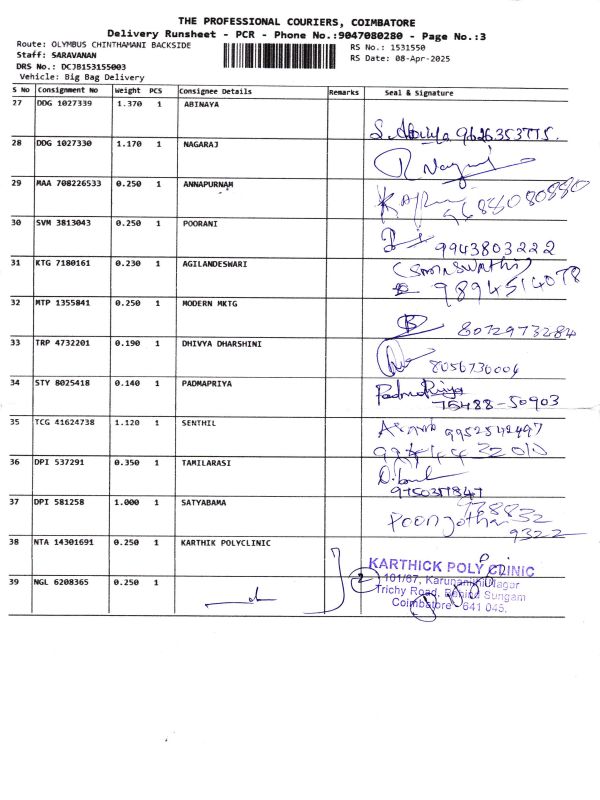 THE PROFESSIONAL COURIERS, COIMBATORE
Delivery Runsheet - PCR - Phone No.:9047080280 - Page No.:3
Route: OLYMBUS CHINTHAMANI BACKSIDE RS No.: 1531550
Staff: SARAVANAN RS Date: 08-Apr-2025
DRS No.: DCJB153155003
Vehicle: Big Bag Delivery
S No Consignment No Weight PCS Consignee Details Remarks Seal & Signature
27 DDG 1027339 1.370 1 ABINAYA
28 DDG 1027330 1.170 1 NAGARAJ
29 MAA 708226533 0.250 1 ANNAPURNAM
30 SVM 3813043 0.250 1 POORANI 9943803222
31 KTG 7180161 0.230 1 AGILANDESWARI 9894514078
32 MTP 1355841 0.250 1 MODERN MKTG 8072973284
33 TRP 4732201 0.190 1 DHIVYA DHARSHINI 8056730006
34 STY 8025418 0.140 1 PADMAPRIYA PadmaPriya
75488-50903
35 TCG 41624738 1.120 1 SENTHIL 9952542497
36 DPI 537291 0.350 1 TAMILARASI
37 DPI 581258 1.000 1 SATYABAMA
9322
38 NTA 14301691 0.250 1 KARTHIK POLYCLINIC
KARTHICK POLY CLINIC
39 NGL 6208365 0.250 1 2 101/67, Karunanithi Nagar
Trichy Road, Behind Sungam
Coimbatore - 641 045.